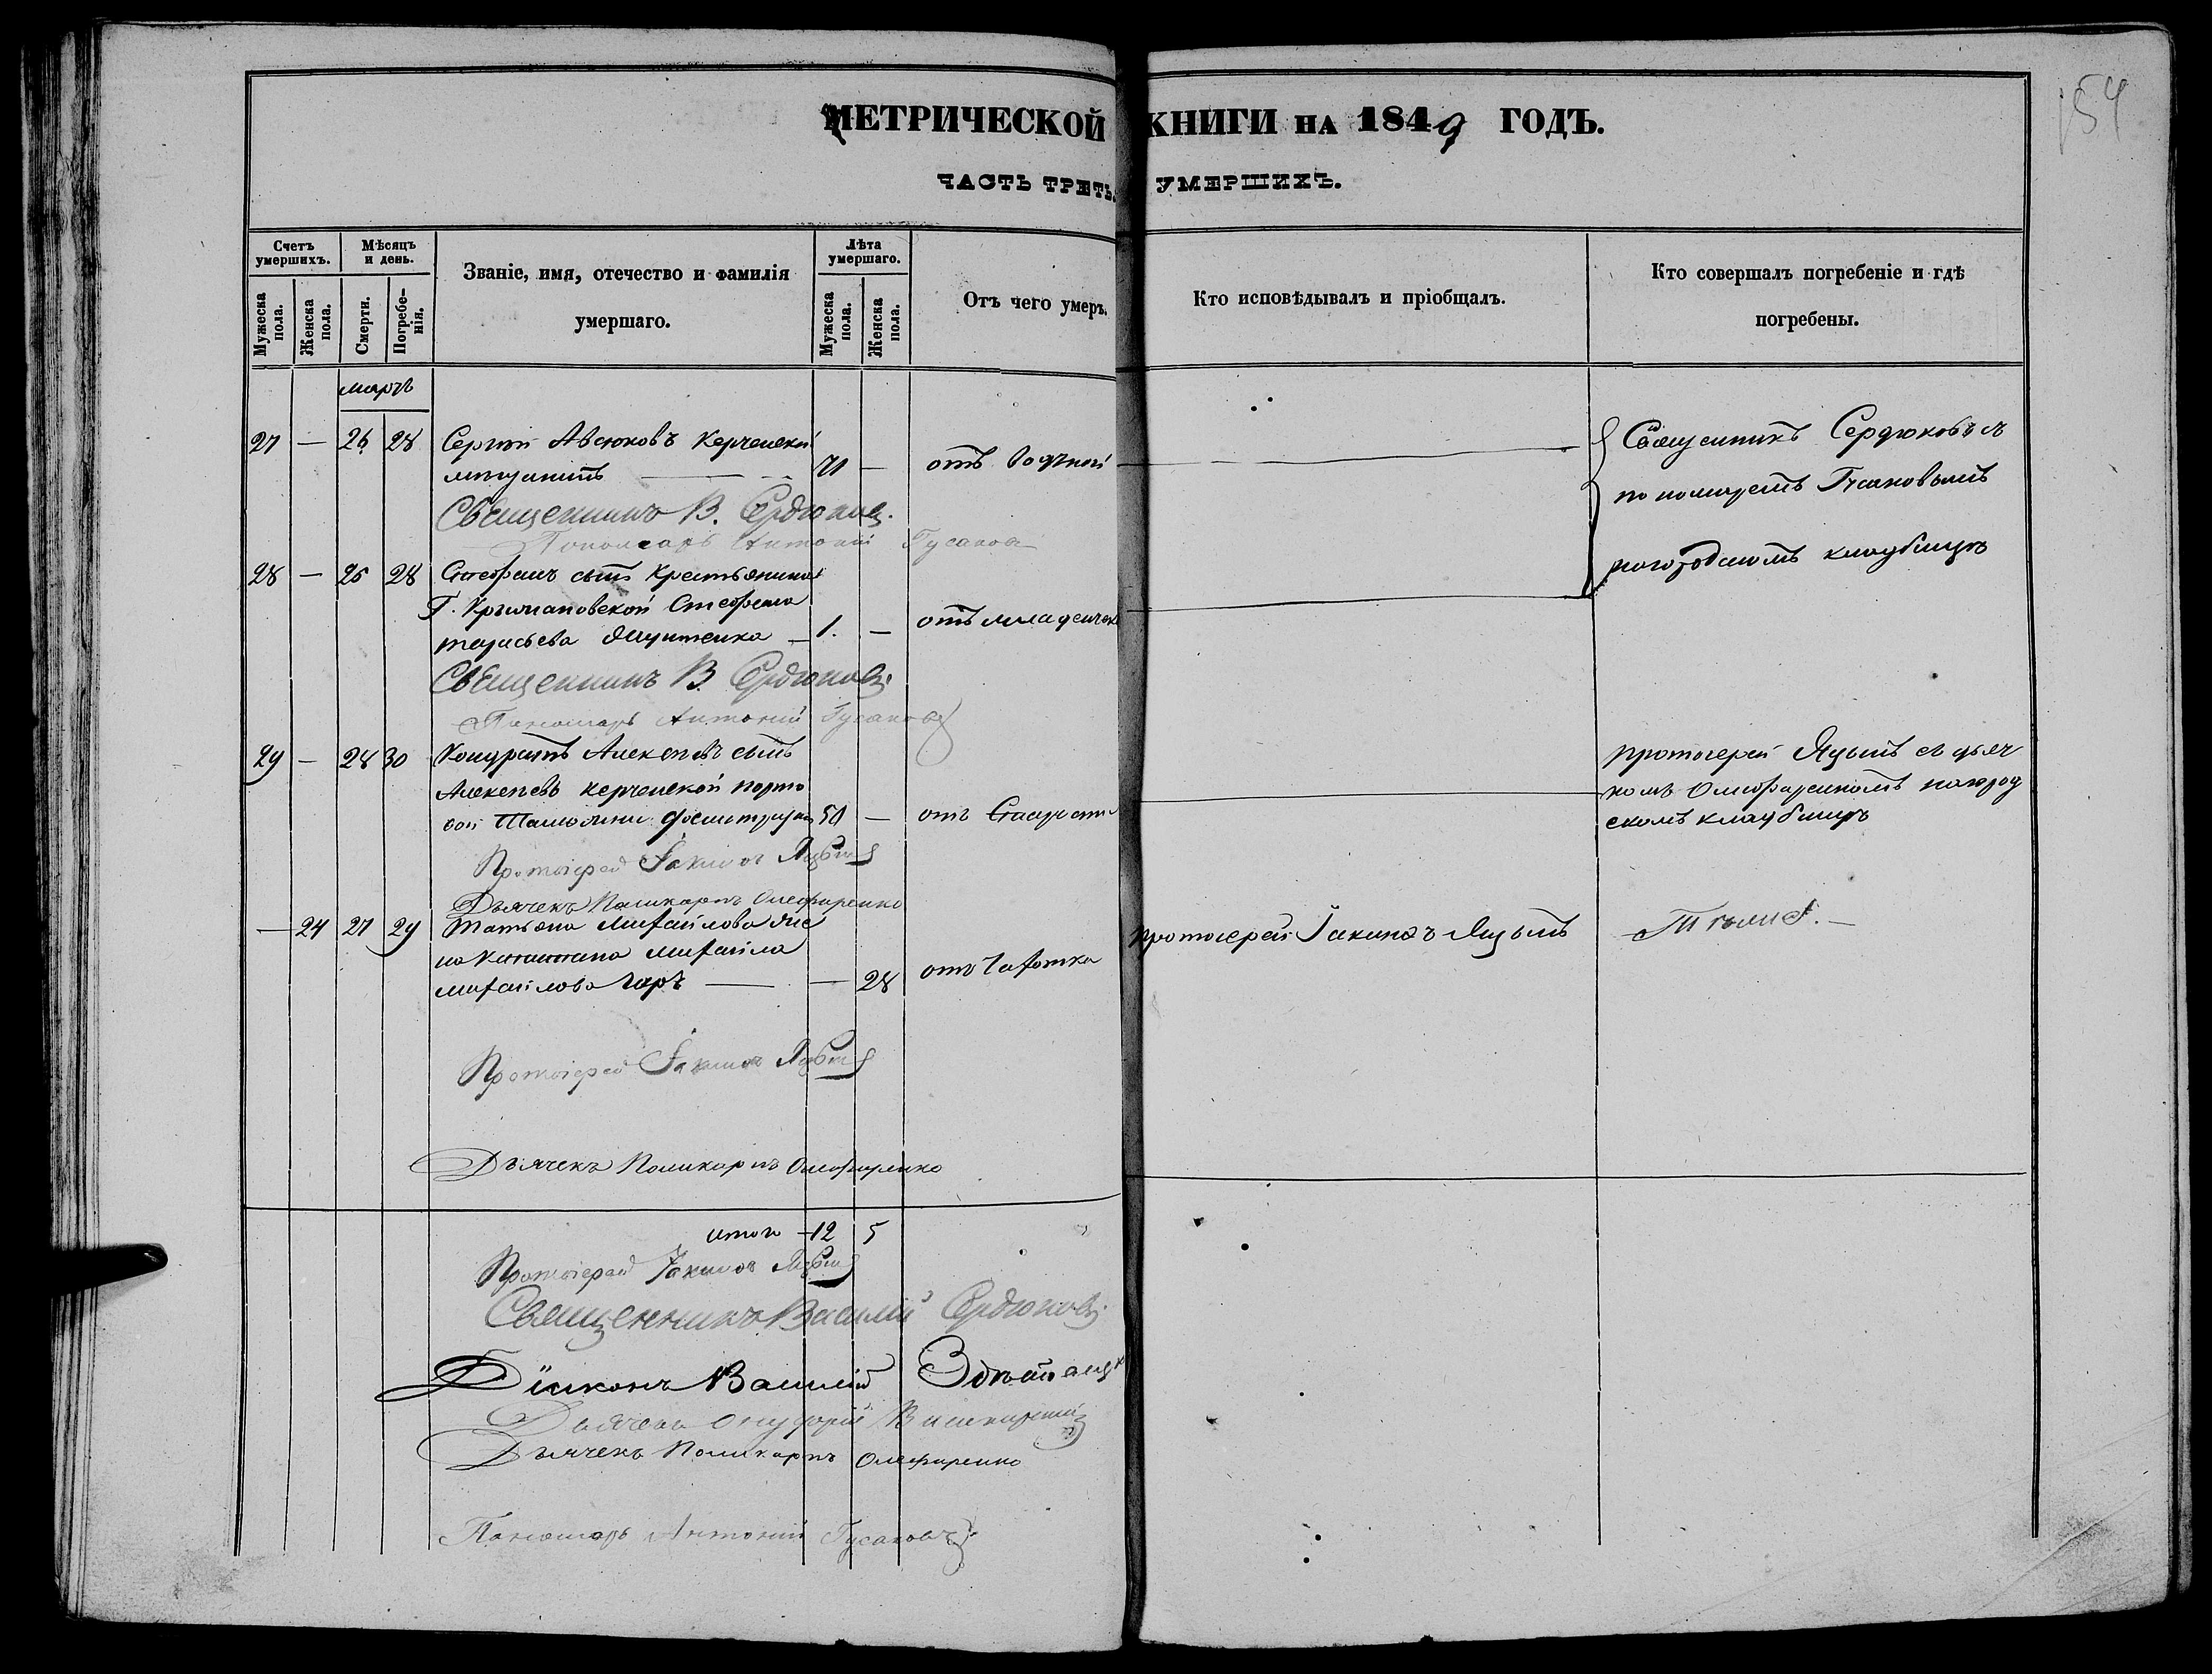 154
МЕТРИЧЕСКОЙ КНИГИ НА 1849 ГОДЪ.
ЧАСТЬ ТРЕТЬ. УМЕРШИХЪ.
Счетъ умершихъ.
Мужеска пола.
Женска пола.
Мѣсяцъ и день.
Смерти.
Погребе-нія.
Званіе, имя, отечество и фамилія
умершаго.
Лѣта умершаго.
Мужеска пола.
Женска пола.
Отъ чего умеръ.
Кто исповѣдывалъ и пріобщалъ.
Кто совершалъ погребеніе и гдѣ
погребены.
мартъ
27 — 26 28 Сергій Авсюковъ Керченскій
мещанинъ — 71 — отъ водяной
Священникъ Сердюковъ съ
пономаремъ Гусаковымъ
кладбищѣ
Священникъ В. Сердюковъ.
Пономарь Антоній Гусаковъ
28 — 25 28 Стефанъ сынъ Крестьянина
Г. Стефана
— 1. — отъ
Священникъ В. Сердюковъ.
Пономарь Антоній Гусаковъ
29 — 28 30 Кондратъ Алексѣевъ сынъ
Алексѣевъ Керченской порто
вой Таможни 50 — отъ Старости
протоіерей Яцынъ съ дьяч
комъ Олефиренкомъ на город
скомъ кладбищѣ
Протоіерей Іакинѳъ Яцынъ
Дьячекъ Поликарпъ Олефиренко
— 24 27 29 Татьяна Михайлова же
на Капитана Михаила
Михайлова — — 28 отъ Чахотки
протоіерей Іакинѳъ Яцынъ
Тѣмиже. —
Протоіерей Іакинѳъ Яцынъ
Дьячекъ Поликарпъ Олефиренко
итого 12 5
Протоіерей Іакинѳъ Яцынъ
Священникъ Василій Сердюковъ.
Діаконъ Василій
Дьячекъ Онуфрій
Дьячекъ Поликарпъ Олефиренко
Пономарь Антоній Гусаковъ